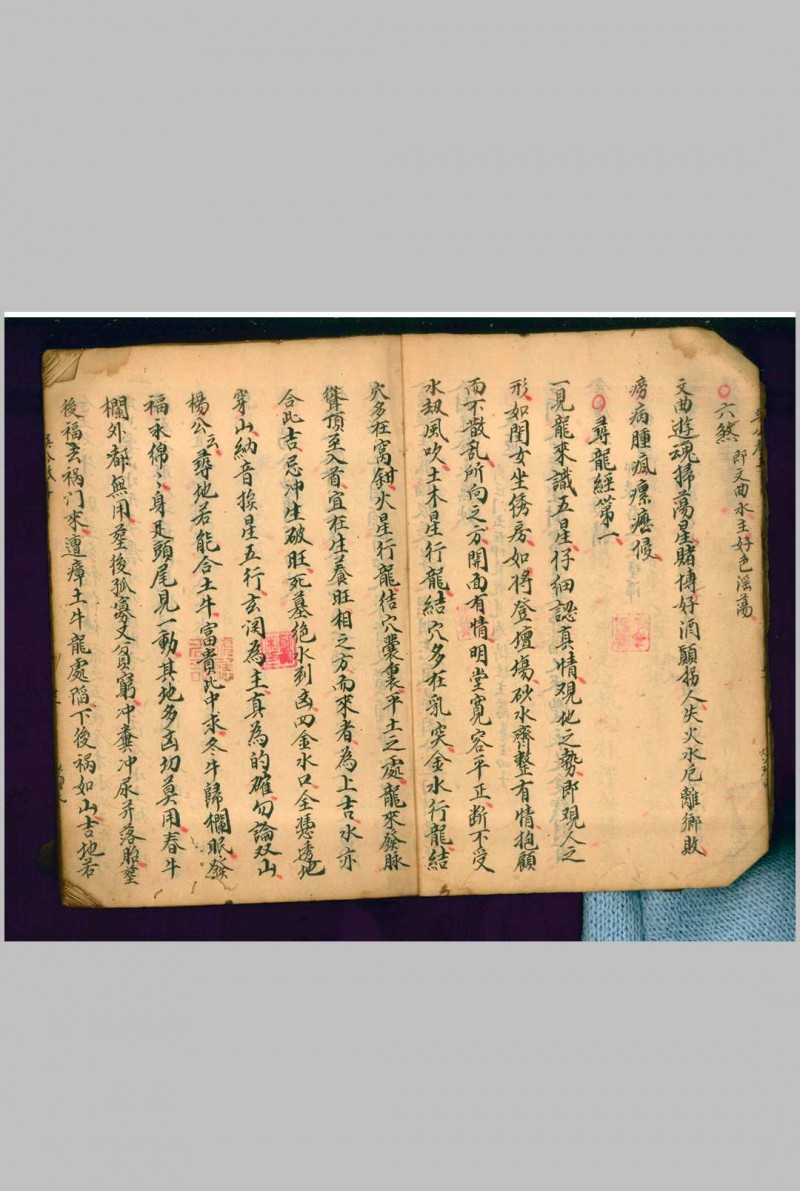 六煞 即文曲水主好色淫蕩
文曲遊魂掃蕩星賭博好酒顛拐人失火水厄離鄉敗
癆病腫瘋瘰癧候
尋龍經第一
一見龍來識五星仔細認真情覌地之勢即覌人之
形如閨女坐綉房如將登壇塲砂水齊整有情抱顧
而不散乱所向之方開面有情明堂寬容平正断不受
水刼風吹土木星行龍結穴多在乳突金水行龍結
穴多在窩鉗火星行龍结穴囊裹平土之處龍來發脉
聳頂至入首宜在生養旺相之方而來者為上吉水亦
合此吉忌冲生破旺死墓絶水到凶四金水口全憑透地
穿山納音挨星五行玄関為主真為的確勿論双山
楊公云尋地若能合土牛富貴此中求冬牛歸欄眠發
福永綿〻身是頭尾見一動其地多凶切莫用春牛
欄外都無用塟後孤寡又貧窮冲糞冲尿并落胎塟
後福去禍门來遭瘴土牛龍處陷下後禍如山吉地若